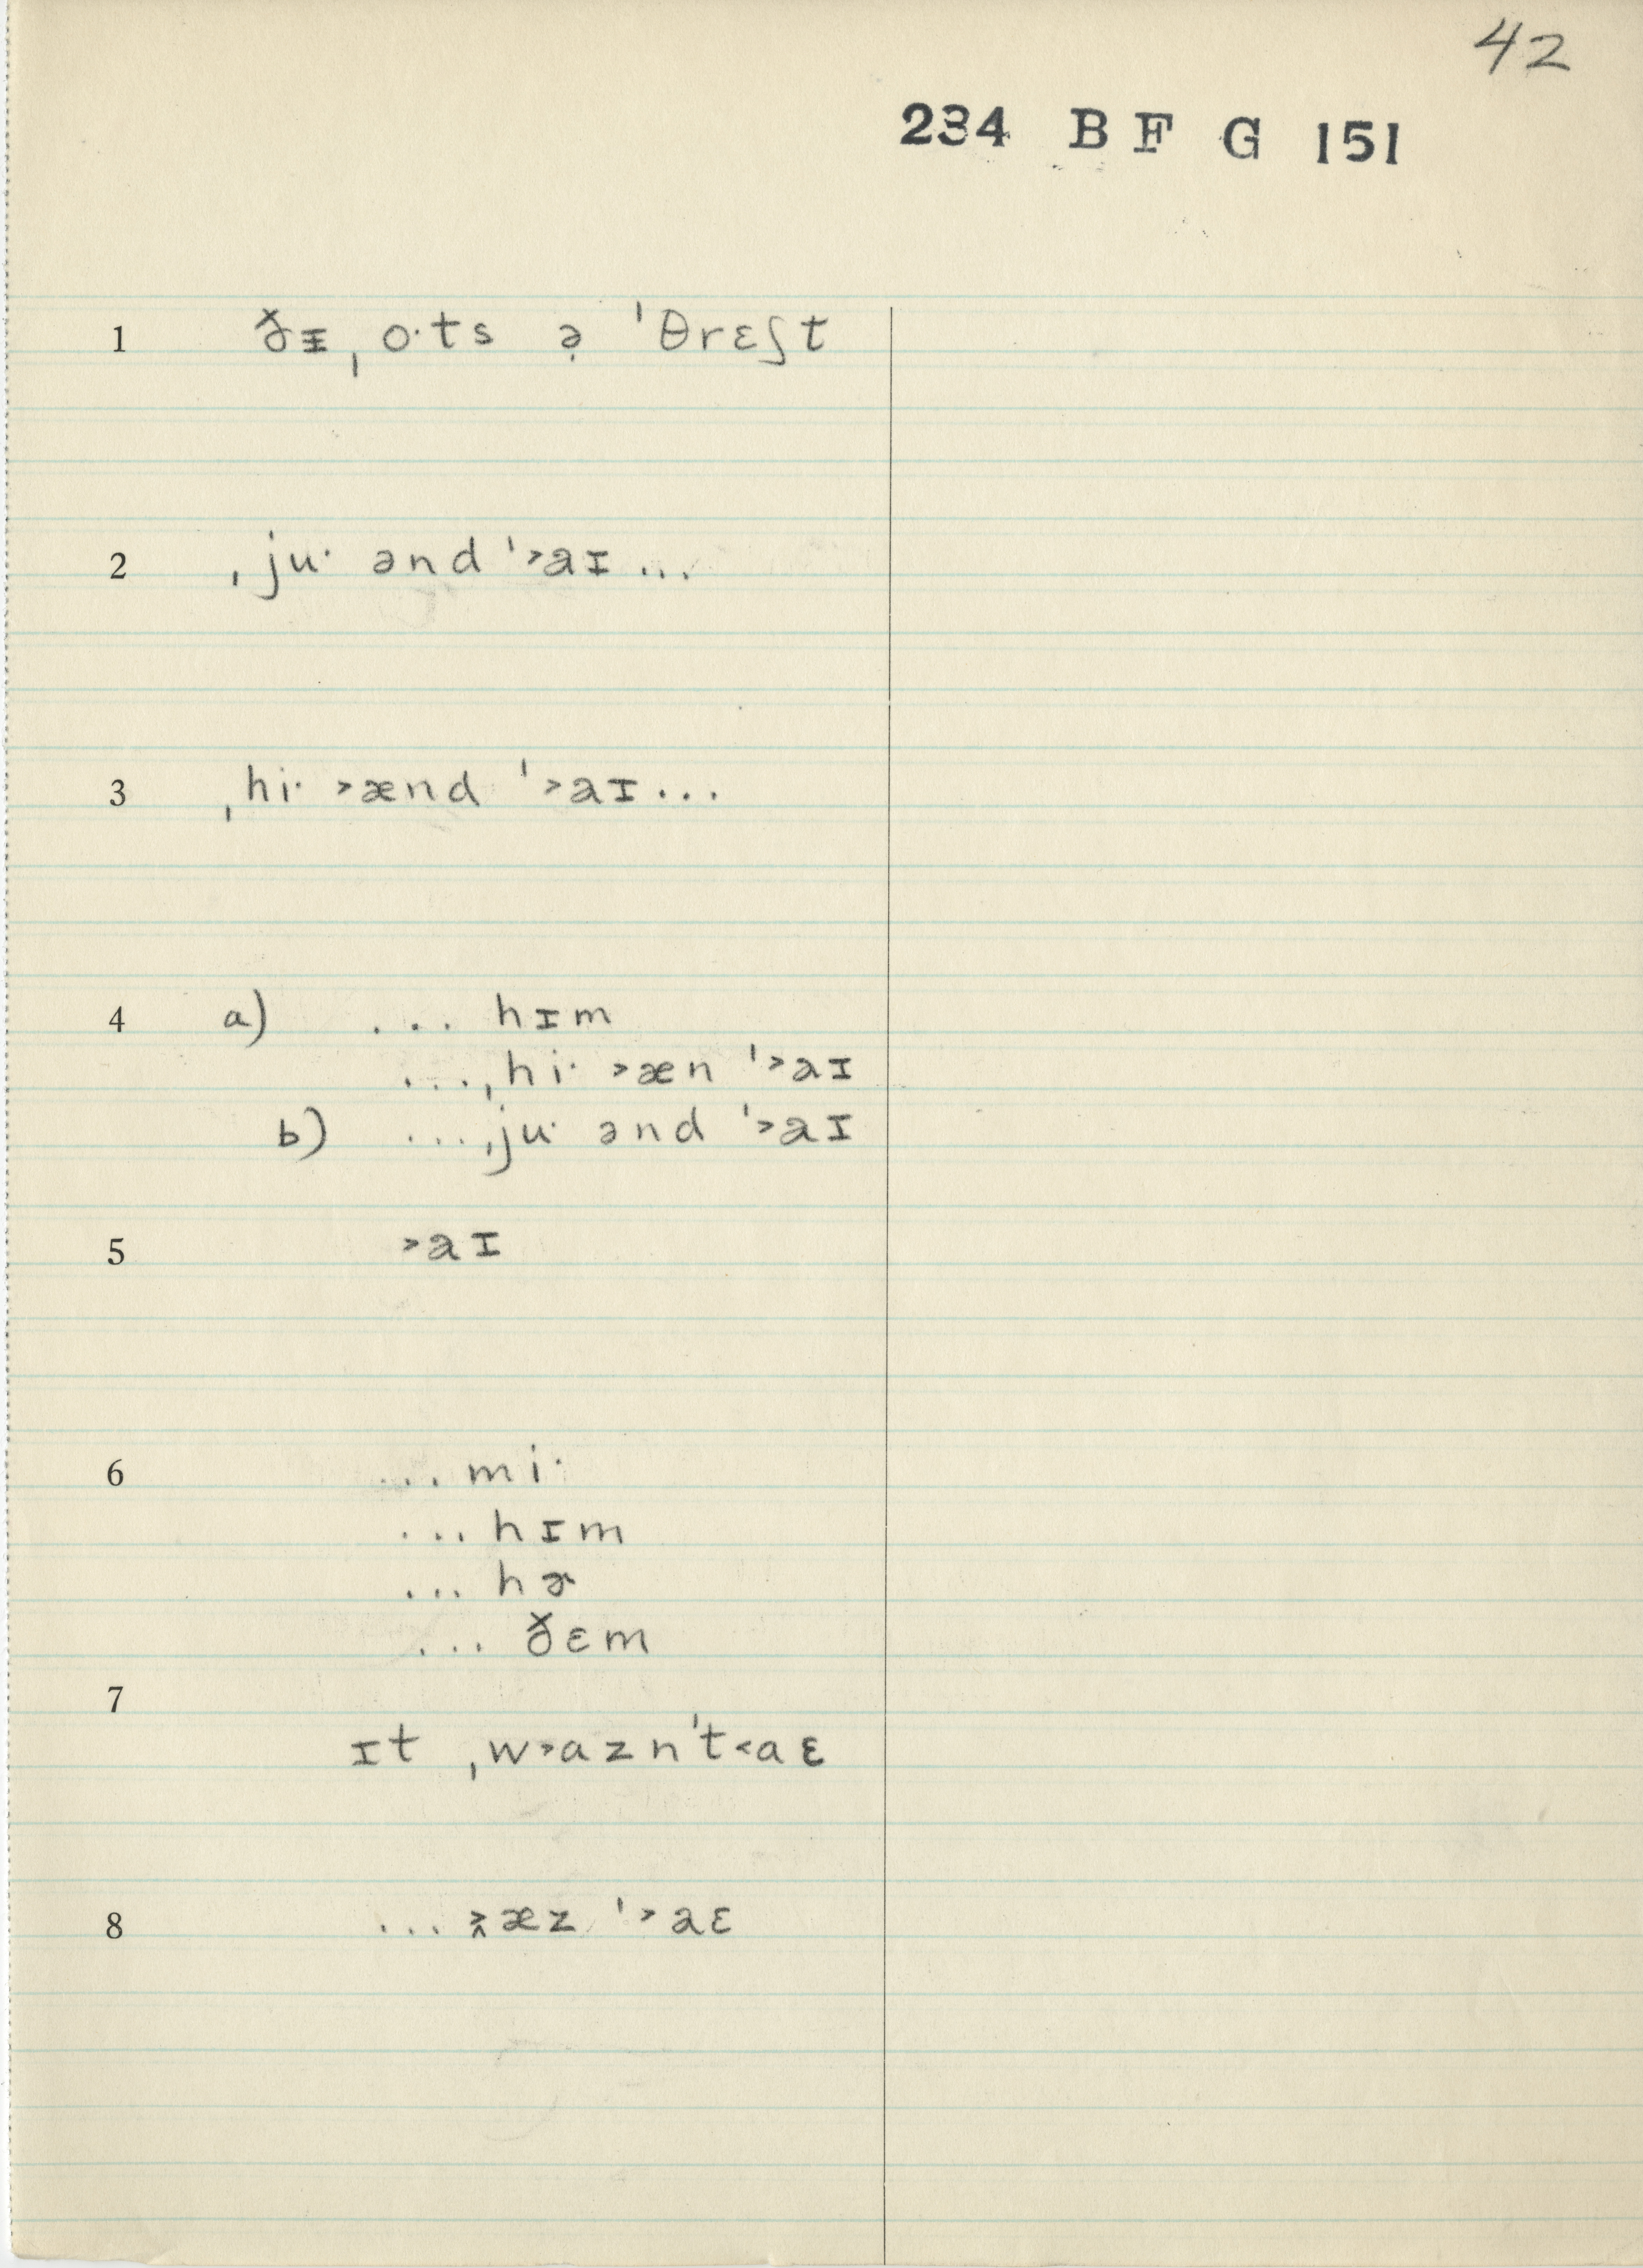 42
234 B F G 151
1 ðᵻ ˌo·ts ə̣ ˈθrɛʃt
2 ˌju· ənd ˈ˃aɪ ...
3 ˌhi· ˃ænd ˈ˃aɪ ...
4 a) ... hɪm
... ˌhi· ˃æn ˈ˃aɪ
b) ... ˌju· ənd ˈ˃aɪ
5 ˃aɪ
6 ... mi·
... hɪm
... hɚ
... ðɛm
7
ɪt ˌw˃ɑznˈt˂aɛ
8 ... ˃̭æz ˈ˃aɛ